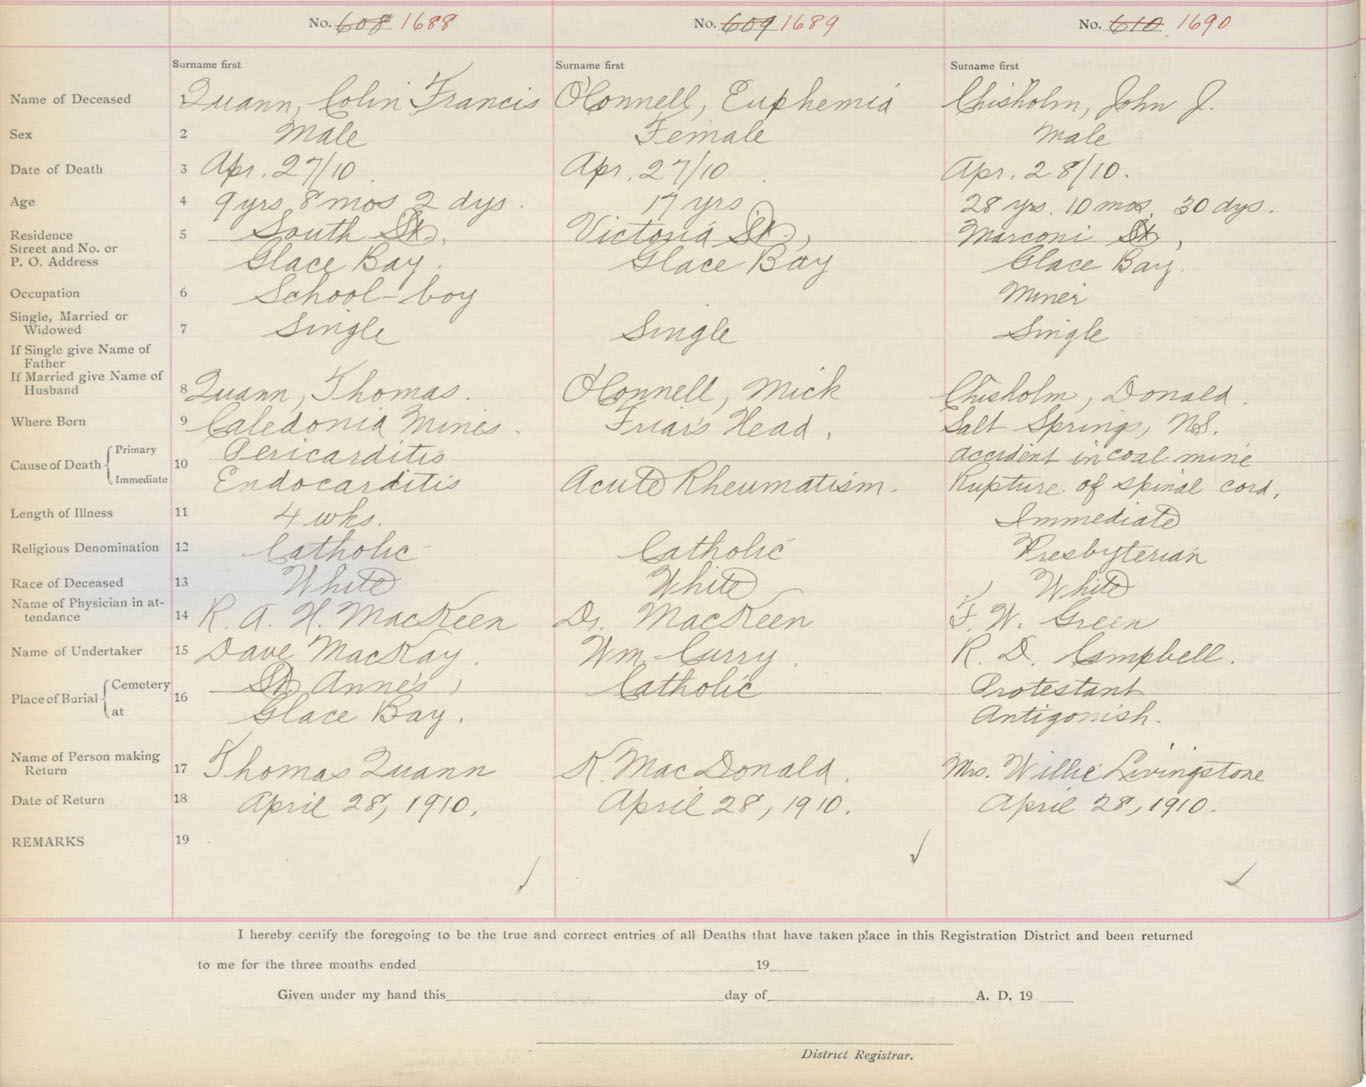 No. 608 1688 No. 609 1689 No. 610 1690
Surname first Surname first Surname first
Name of Deceased 1 Quann, Colin Francis O'Connell, Euphemia Chisholm, John J.
Sex 2 Male Female Male
Date of Death 3 Apr. 27/10 Apr. 27/10 Apr. 28/10.
Age 4 9 yrs 8 mos 2 dys. 17 yrs 28 yrs. 10 mos. 30 dys.
Residence 5 South St, Victoria St, Marconi St,
Street and No. or
P. O. Address Glace Bay. Glace Bay Glace Bay.
Occupation 6 School-boy Miner
Single, Married or
Widowed 7 Single Single Single
If Single give Name of
Father
If Married give Name of
Husband 8 Quann, Thomas. O'Connell, Mick Chisholm, Donald.
Where Born 9 Caledonia Mines. Friar's Head. Salt Springs, N.S.
Cause of Death 10 Primary Pericarditis accident in coal mine
Immediate Endocarditis Acute Rheumatism. Rupture of spinal cord.
Length of Illness 11 4 wks. Immediate
Religious Denomination 12 Catholic Catholic Presbyterian
Race of Deceased 13 White White White
Name of Physician in at-
tendance 14 R. A. H. MacKeen Dr. MacKeen F. W. Green
Name of Undertaker 15 Dave MacKay. Wm Curry. R. D. Campbell.
Place of Burial 16 Cemetery St Anne's, Catholic Protestant
at Glace Bay. Antigonish.
Name of Person making
Return 17 Thomas Quann K. MacDonald. Mrs. Willie Livingstone
Date of Return 18 April 28, 1910. April 28, 1910. April 28, 1910.
REMARKS 19
I hereby certify the foregoing to be the true and correct entries of all Deaths that have taken place in this Registration District and been returned
to me for the three months ended 19
Given under my hand this day of A. D. 19
District Registrar.